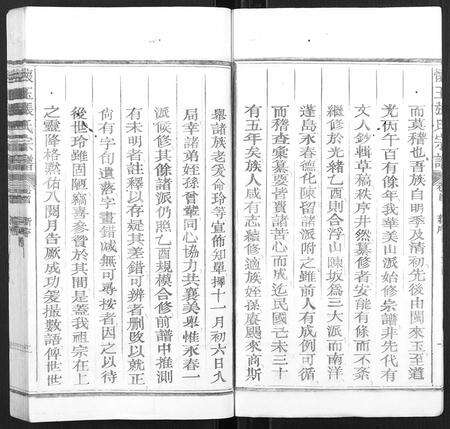 懷玉張氏宗譜
而莫稽也吾族自明季及清初先後由閩來玉至道
光丙午百有餘年我華美山派始修宗譜非先代有
文人鈔輯草稿秩序井然纂修者安能有條而不紊
繼修於光緒乙酉則合浮山陳坂爲三大派而南洋
蓬島永春德化陳留諸派附之雖前人有成例可循
而稽查彙纂要皆費諸苦心而成迄民國己未三十
有五年矣族人咸有志繼修適族姪揆颺來商斯
舉諸族老爰命玲等宣佈知單擇十一月初六日入
局幸諸弟姪孫曾輩同心協力共襄美舉惟永春一
派候修其餘諸派仍照乙酉規模合修前譜中推測
有未明者註釋以存疑其差錯可辨者刪改以就正
尙有字句遺落字畫錯譌無可尋按者因之以待
後世玲雖固陋竊喜參贊於其間是蓋我祖宗在上
之靈降格默佑八閱月告厥成功爰撮數語俾世世
懷玉張氏宗譜